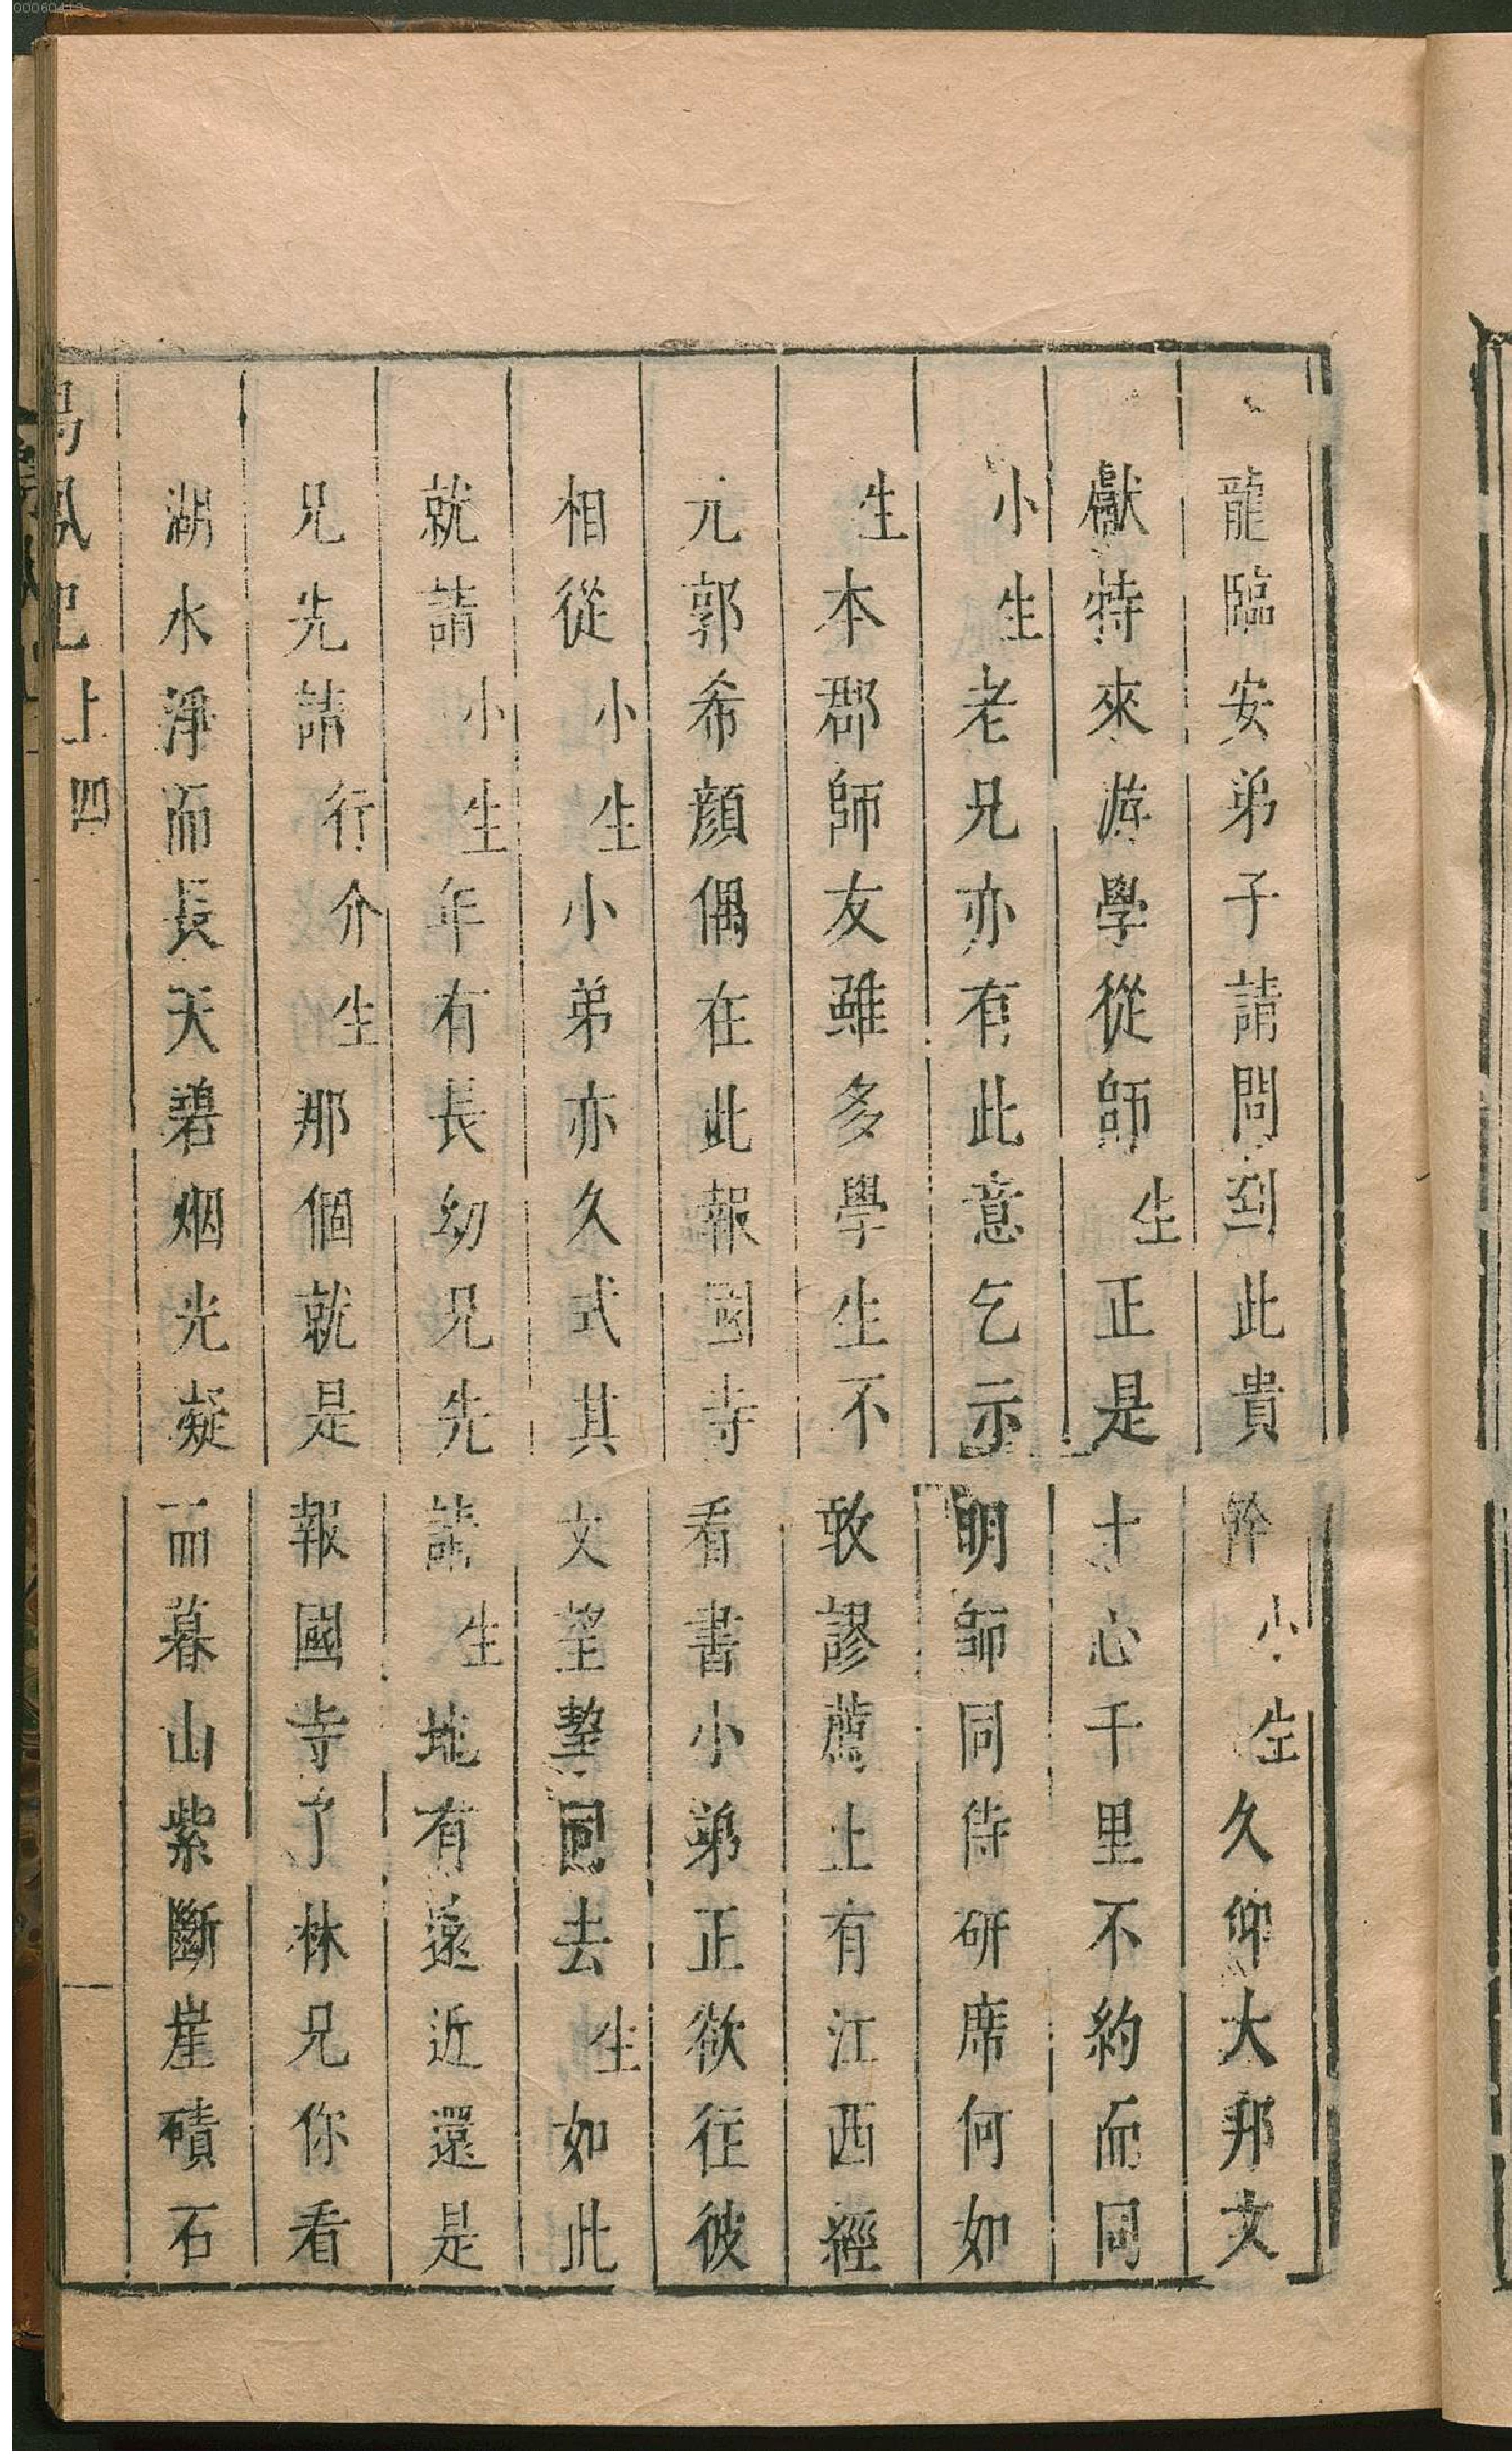 龍臨安弟子請問到此貴幹小生久仰大邦文
獻特來游學從師生正是士心千里不約而同
小生老兄亦有此意乞示明師同侍研席何如
生本郡師友雖多學生不敢謬薦上有江西經
元郭希顔偶在此報國寺看書小弟正欲往彼
相從小生小弟亦久式其文望挈同去生如此
就請小生年有長幼兄先請生地有遠近還是
兄先請行介生那個就是報國寺了林兄你看
湖水淨而長天碧烟光凝而暮山紫斷崖磧石
鳳 上 四
00060412